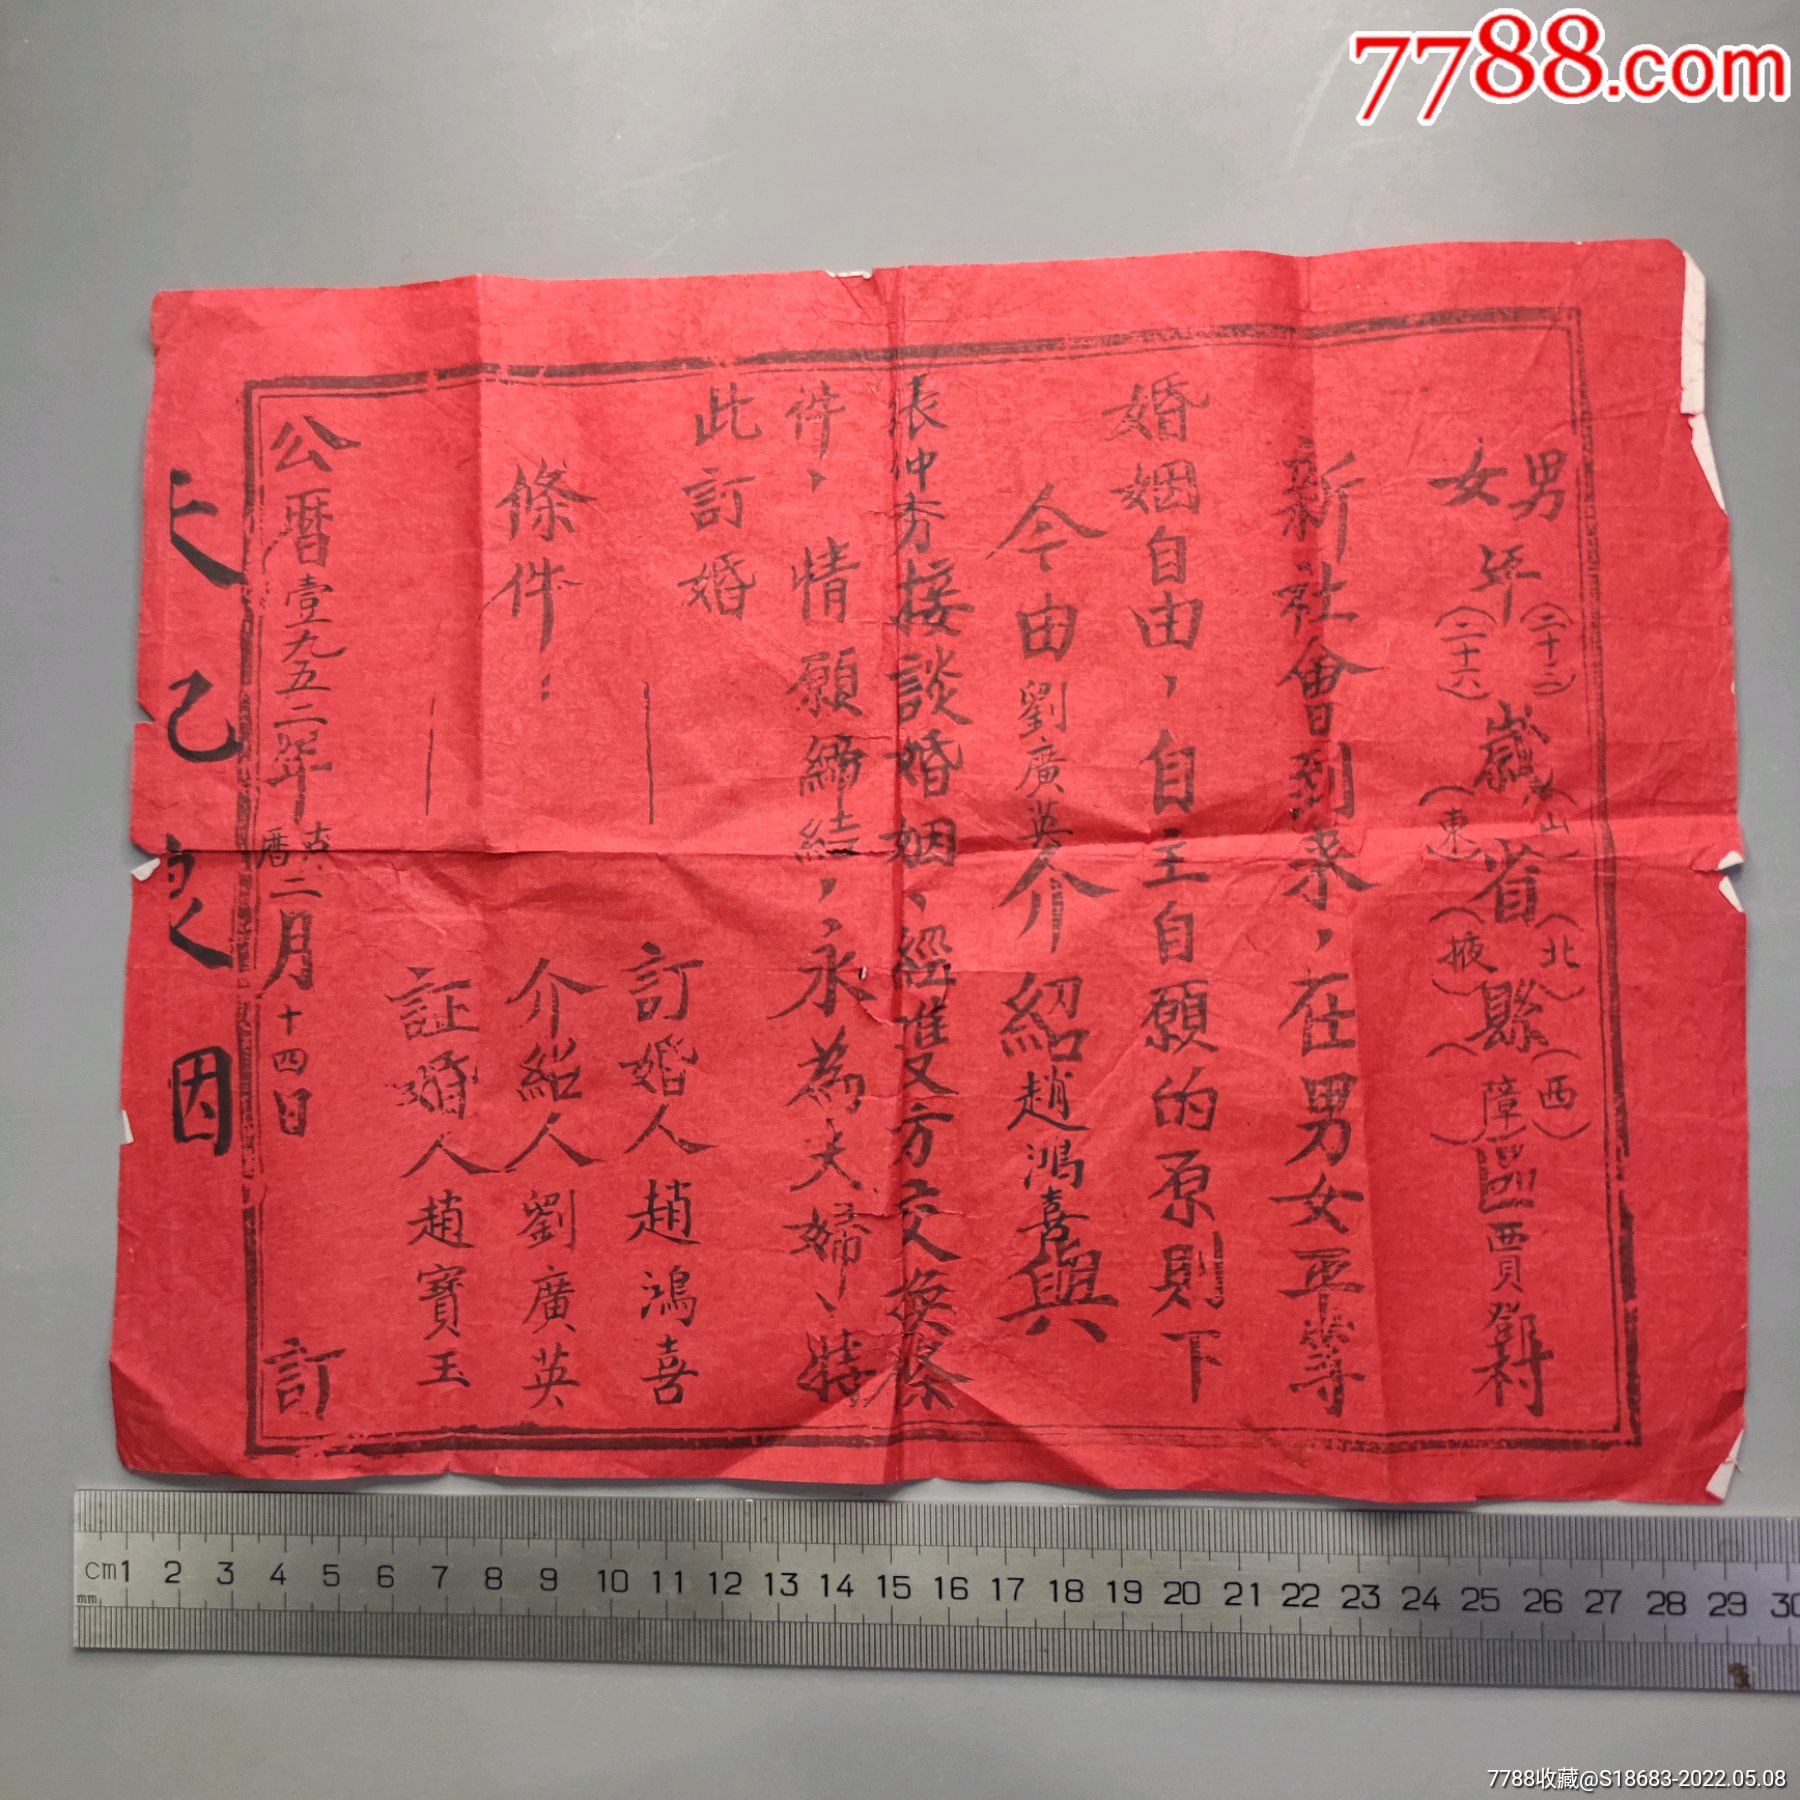 7788.com
男 年(二十二)歲(山)省(北)縣(西)
女 (二十六)(東)(掖)(障)區賈鄧村
新社會到来,在男女平等
婚姻自由,自主自願的原則下
今由劉廣英介紹趙鴻喜與
張仲芳接談婚姻、經雙方交換條
件、情願締結,永為夫婦、特
此訂婚
條件:
訂婚人趙鴻喜
介紹人劉廣英
証婚人趙寶玉
公曆壹九五二年古曆二月十四日 訂
cm 1 2 3 4 5 6 7 8 9 10 11 12 13 14 15 16 17 18 19 20 21 22 23 24 25 26 27 28 29 30
mm
7788收藏@S18683-2022.05.08